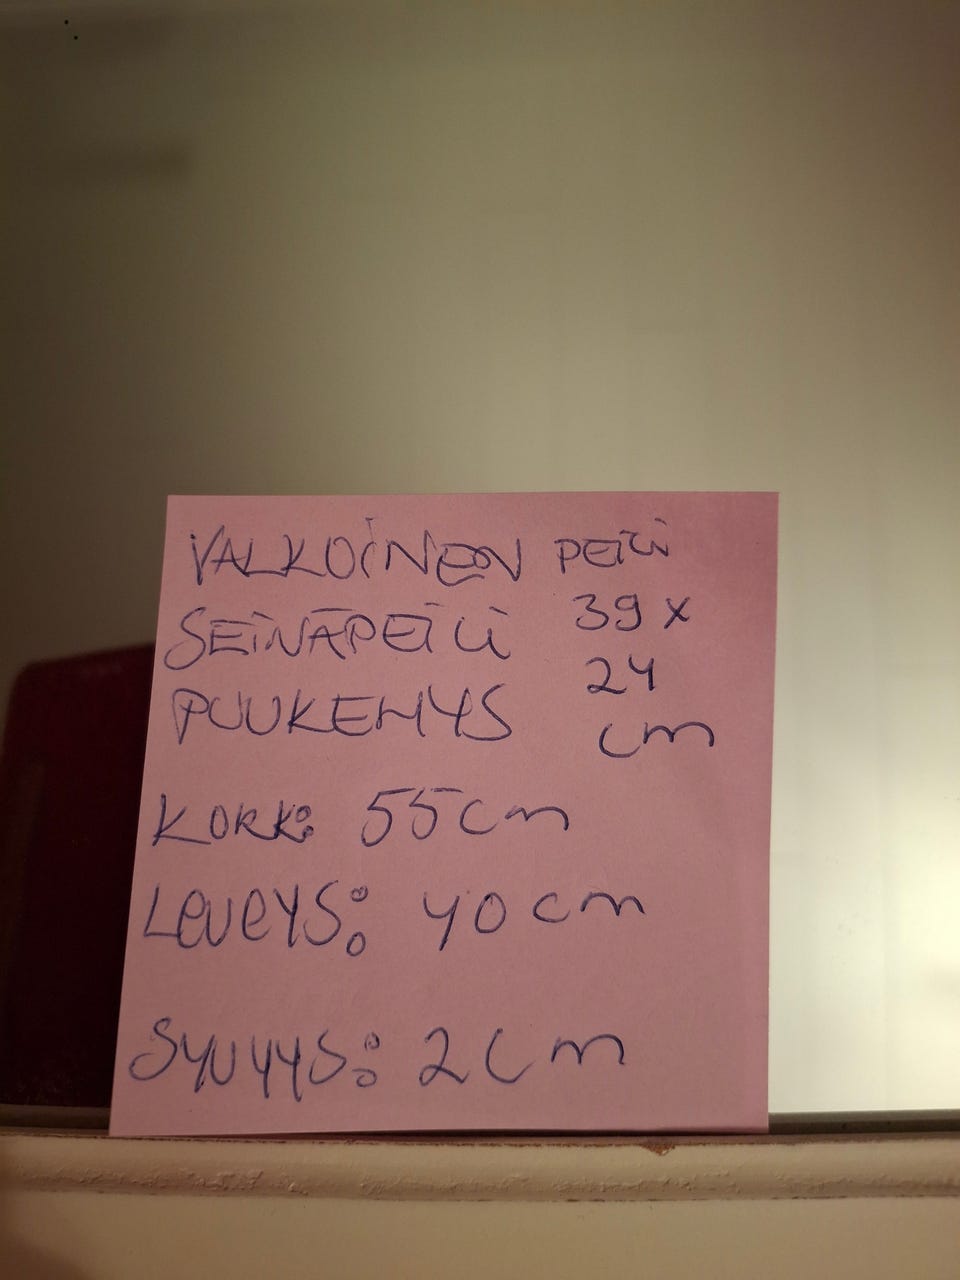 VALKOINEN
SEINÄPEILI
PUUKEHYS
PEILI
39 x
24
cm
KORK: 55 cm
LEVEYS: 40 cm
SYVYYS: 2 cm